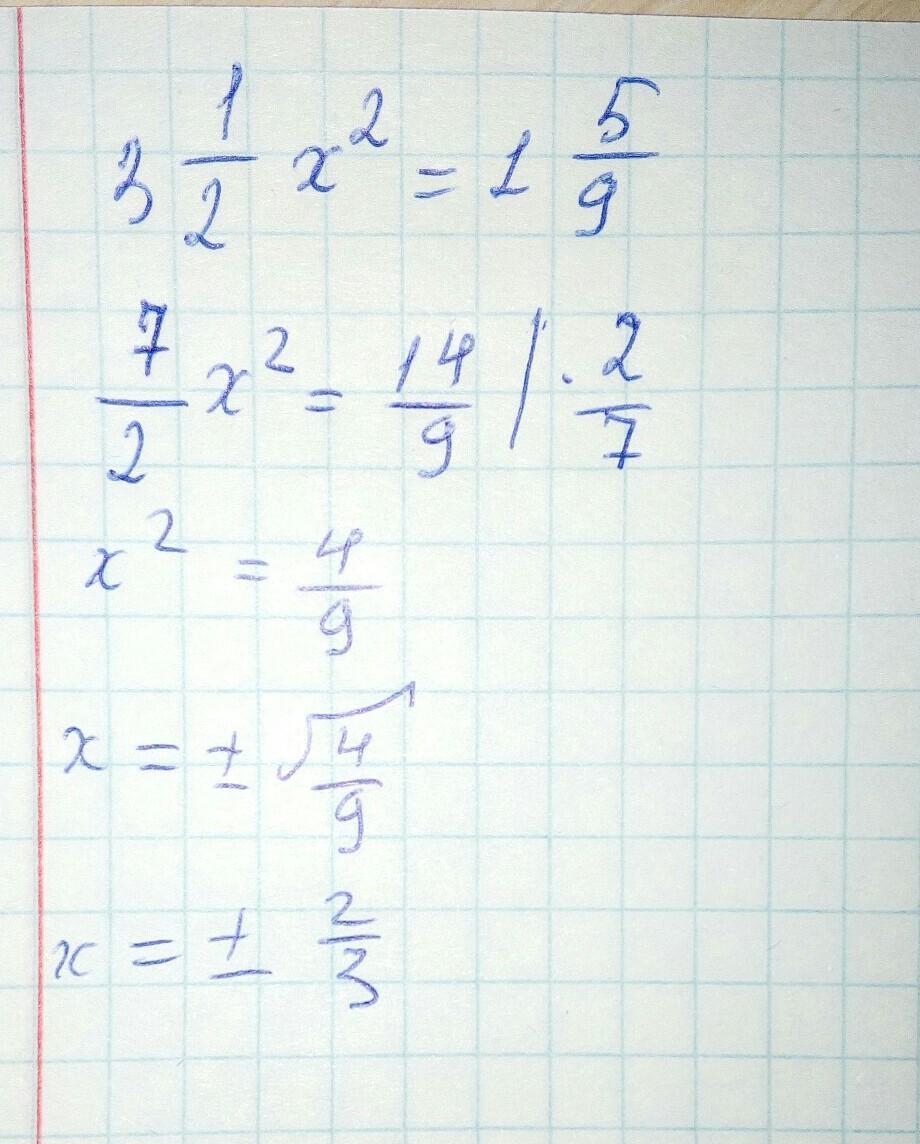 3 1/2 x² = 1 5/9
7/2 x² = 14/9 | · 2/7
x² = 4/9
x = ± √4/9
x = ± 2/3